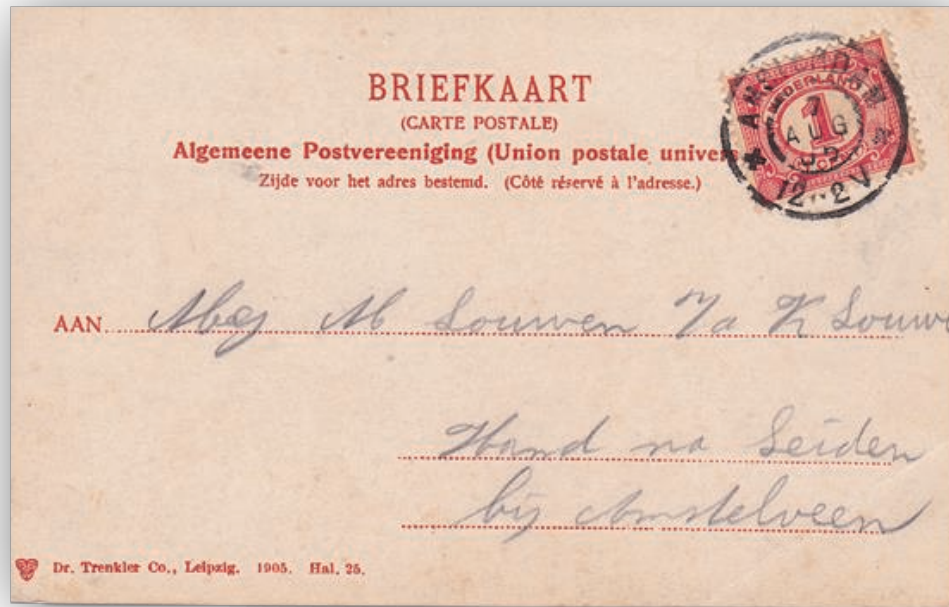 BRIEFKAART
(CARTE POSTALE)
Algemeene Postvereeniging (Union postale univers
Zijde voor het adres bestemd. (Côté réservé à l'adresse.)
NEDERLAND
1
AUG
12-2V
AAN M Souwen K Souwe
Hand na Leiden
bij Amstelveen
Dr. Trenkler Co., Leipzig. 1905. Hal. 25.